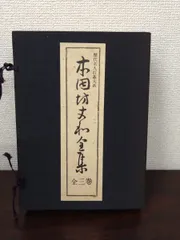 本因坊丈和全集
全三巻